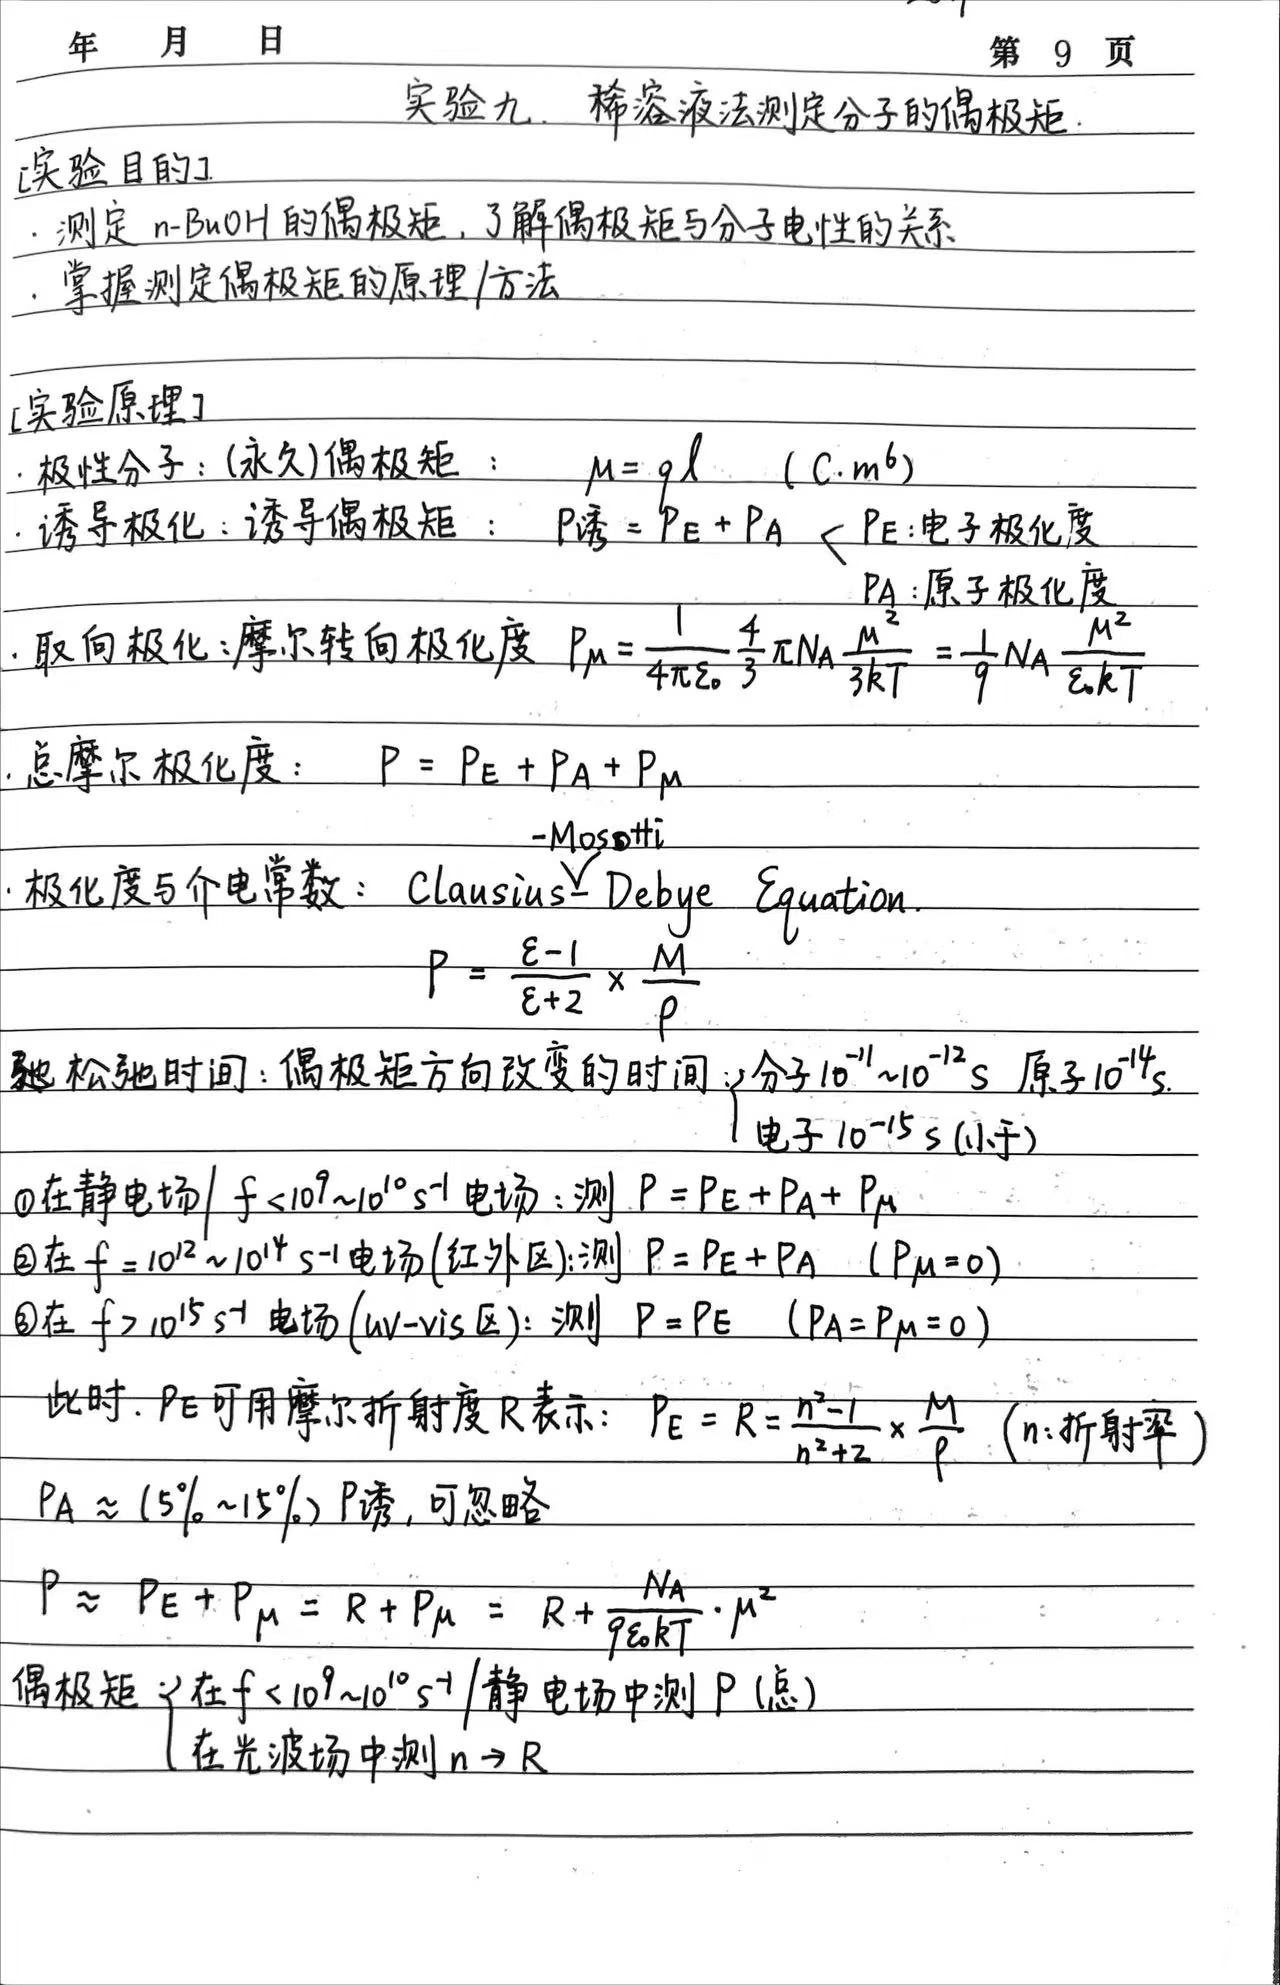 年 月 日 第 9 页
实验九. 稀溶液法测定分子的偶极矩.
[实验目的]
· 测定 n-BuOH 的偶极矩, 了解偶极矩与分子电性的关系
· 掌握测定偶极矩的原理/方法
[实验原理]
· 极性分子: (永久)偶极矩: μ = ql (C·m⁶)
· 诱导极化: 诱导偶极矩: P诱 = PE + PA < PE: 电子极化度
PA: 原子极化度
· 取向极化: 摩尔转向极化度 Pμ = \frac{1}{4πε₀} \frac{4}{3} πNA \frac{μ²}{3kT} = \frac{1}{9} NA \frac{μ²}{ε₀kT}
· 总摩尔极化度: P = PE + PA + Pμ
-Mosotti
· 极化度与介电常数: Clausius - Debye Equation.
P = \frac{ε-1}{ε+2} × \frac{M}{ρ}
松弛时间: 偶极矩方向改变的时间: { 分子 10⁻¹¹~10⁻¹² s 原子 10⁻¹⁴ s.
电子 10⁻¹⁵ s (小于)
①在静电场/ f < 10⁹~10¹⁰ s⁻¹ 电场: 测 P = PE + PA + Pμ
②在 f = 10¹² ~ 10¹⁴ s⁻¹ 电场(红外区): 测 P = PE + PA (Pμ = 0)
③在 f > 10¹⁵ s⁻¹ 电场(UV-vis区): 测 P = PE (PA = Pμ = 0)
此时. PE可用摩尔折射度R表示: PE = R = \frac{n²-1}{n²+2} × \frac{M}{ρ} (n: 折射率)
PA ≈ (5% ~ 15%) P诱, 可忽略
P ≈ PE + Pμ = R + Pμ = R + \frac{NA}{9ε₀kT} · μ²
偶极矩 { 在 f < 10⁹~10¹⁰ s⁻¹ / 静电场中测 P (总)
在光波场中测 n → R